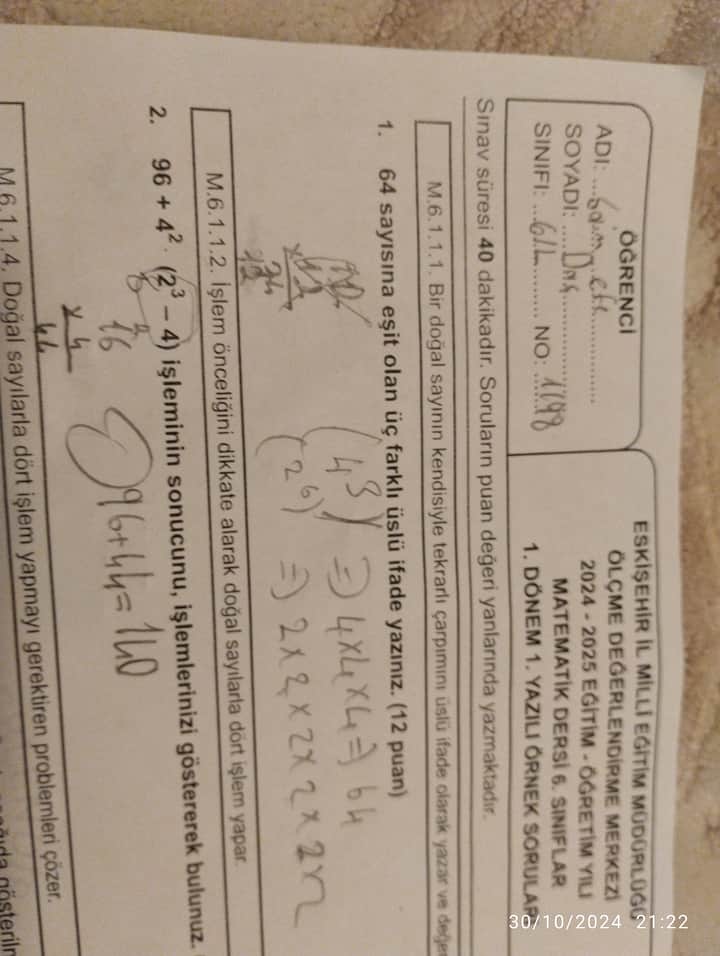 ÖĞRENCİ
ADI: ...
SOYADI: ...
SINIFI: ...6/L... NO: ...1698
ESKİŞEHİR İL MİLLİ EĞİTİM MÜDÜRLÜĞÜ
ÖLÇME DEĞERLENDİRME MERKEZİ
2024 - 2025 EĞİTİM - ÖĞRETİM YILI
MATEMATİK DERSİ 6. SINIFLAR
1. DÖNEM 1. YAZILI ÖRNEK SORULARI
Sınav süresi 40 dakikadır. Soruların puan değeri yanlarında yazmaktadır.
M.6.1.1.1. Bir doğal sayının kendisiyle tekrarlı çarpımını üslü ifade olarak yazar ve değe
1. 64 sayısına eşit olan üç farklı üslü ifade yazınız. (12 puan)
(4³) => 4x4x4 => 64
(2⁶) => 2x2x2x2x2x2
M.6.1.1.2. İşlem önceliğini dikkate alarak doğal sayılarla dört işlem yapar.
2. 96 + 4² · (2³ – 4) işleminin sonucunu, işlemlerinizi göstererek bulunuz.
8
2
16
x 4
44
96+44=140
M.6.1.1.4. Doğal sayılarla dört işlem yapmayı gerektiren problemleri çözer.
30/10/2024 21:22